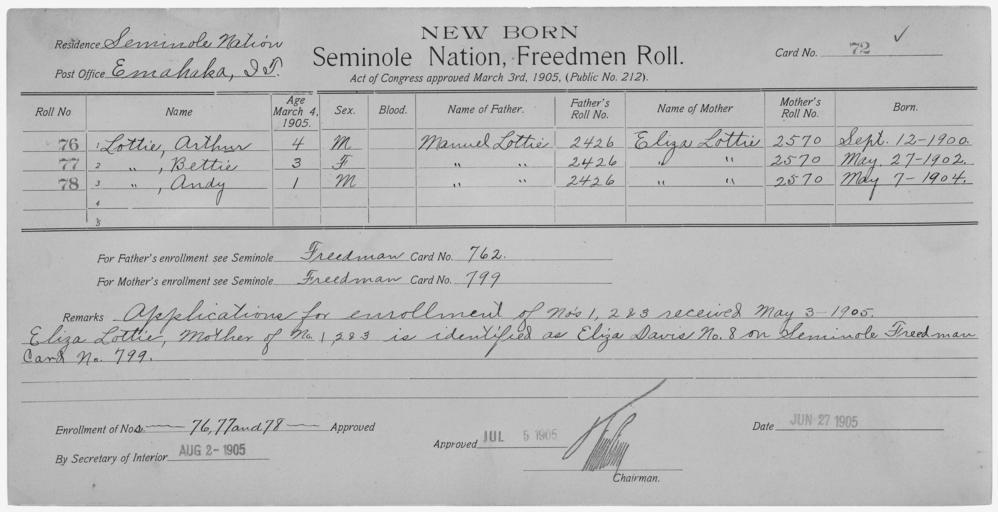 NEW BORN
Residence Seminole Nation
Seminole Nation, Freedmen Roll.
Card No. 72 ✓
Post Office Emahaka, I.T.
Act of Congress approved March 3rd, 1905, (Public No. 212).
Roll No Name Age March 4, 1905. Sex. Blood. Name of Father. Father's Roll No. Name of Mother Mother's Roll No. Born.
76 1 Lottie, Arthur 4 M Manuel Lottie 2426 Eliza Lottie 2570 Sept. 12-1900.
77 2 " , Bettie 3 F " " 2426 " " 2570 May 27-1902.
78 3 " , Andy 1 M " " 2426 " " 2570 May 7-1904.
4
5
For Father's enrollment see Seminole Freedman Card No. 762.
For Mother's enrollment see Seminole Freedman Card No. 799
Remarks Applications for enrollment of Nos 1, 2&3 received May 3-1905.
Eliza Lottie, Mother of No. 1, 2&3 is identified as Eliza Davis No. 8 on Seminole Freedman
Card No. 799.
Enrollment of Nos 76, 77 and 78 Approved
By Secretary of Interior AUG 2-1905
Approved JUL 5 1905
Chairman.
Date JUN 27 1905